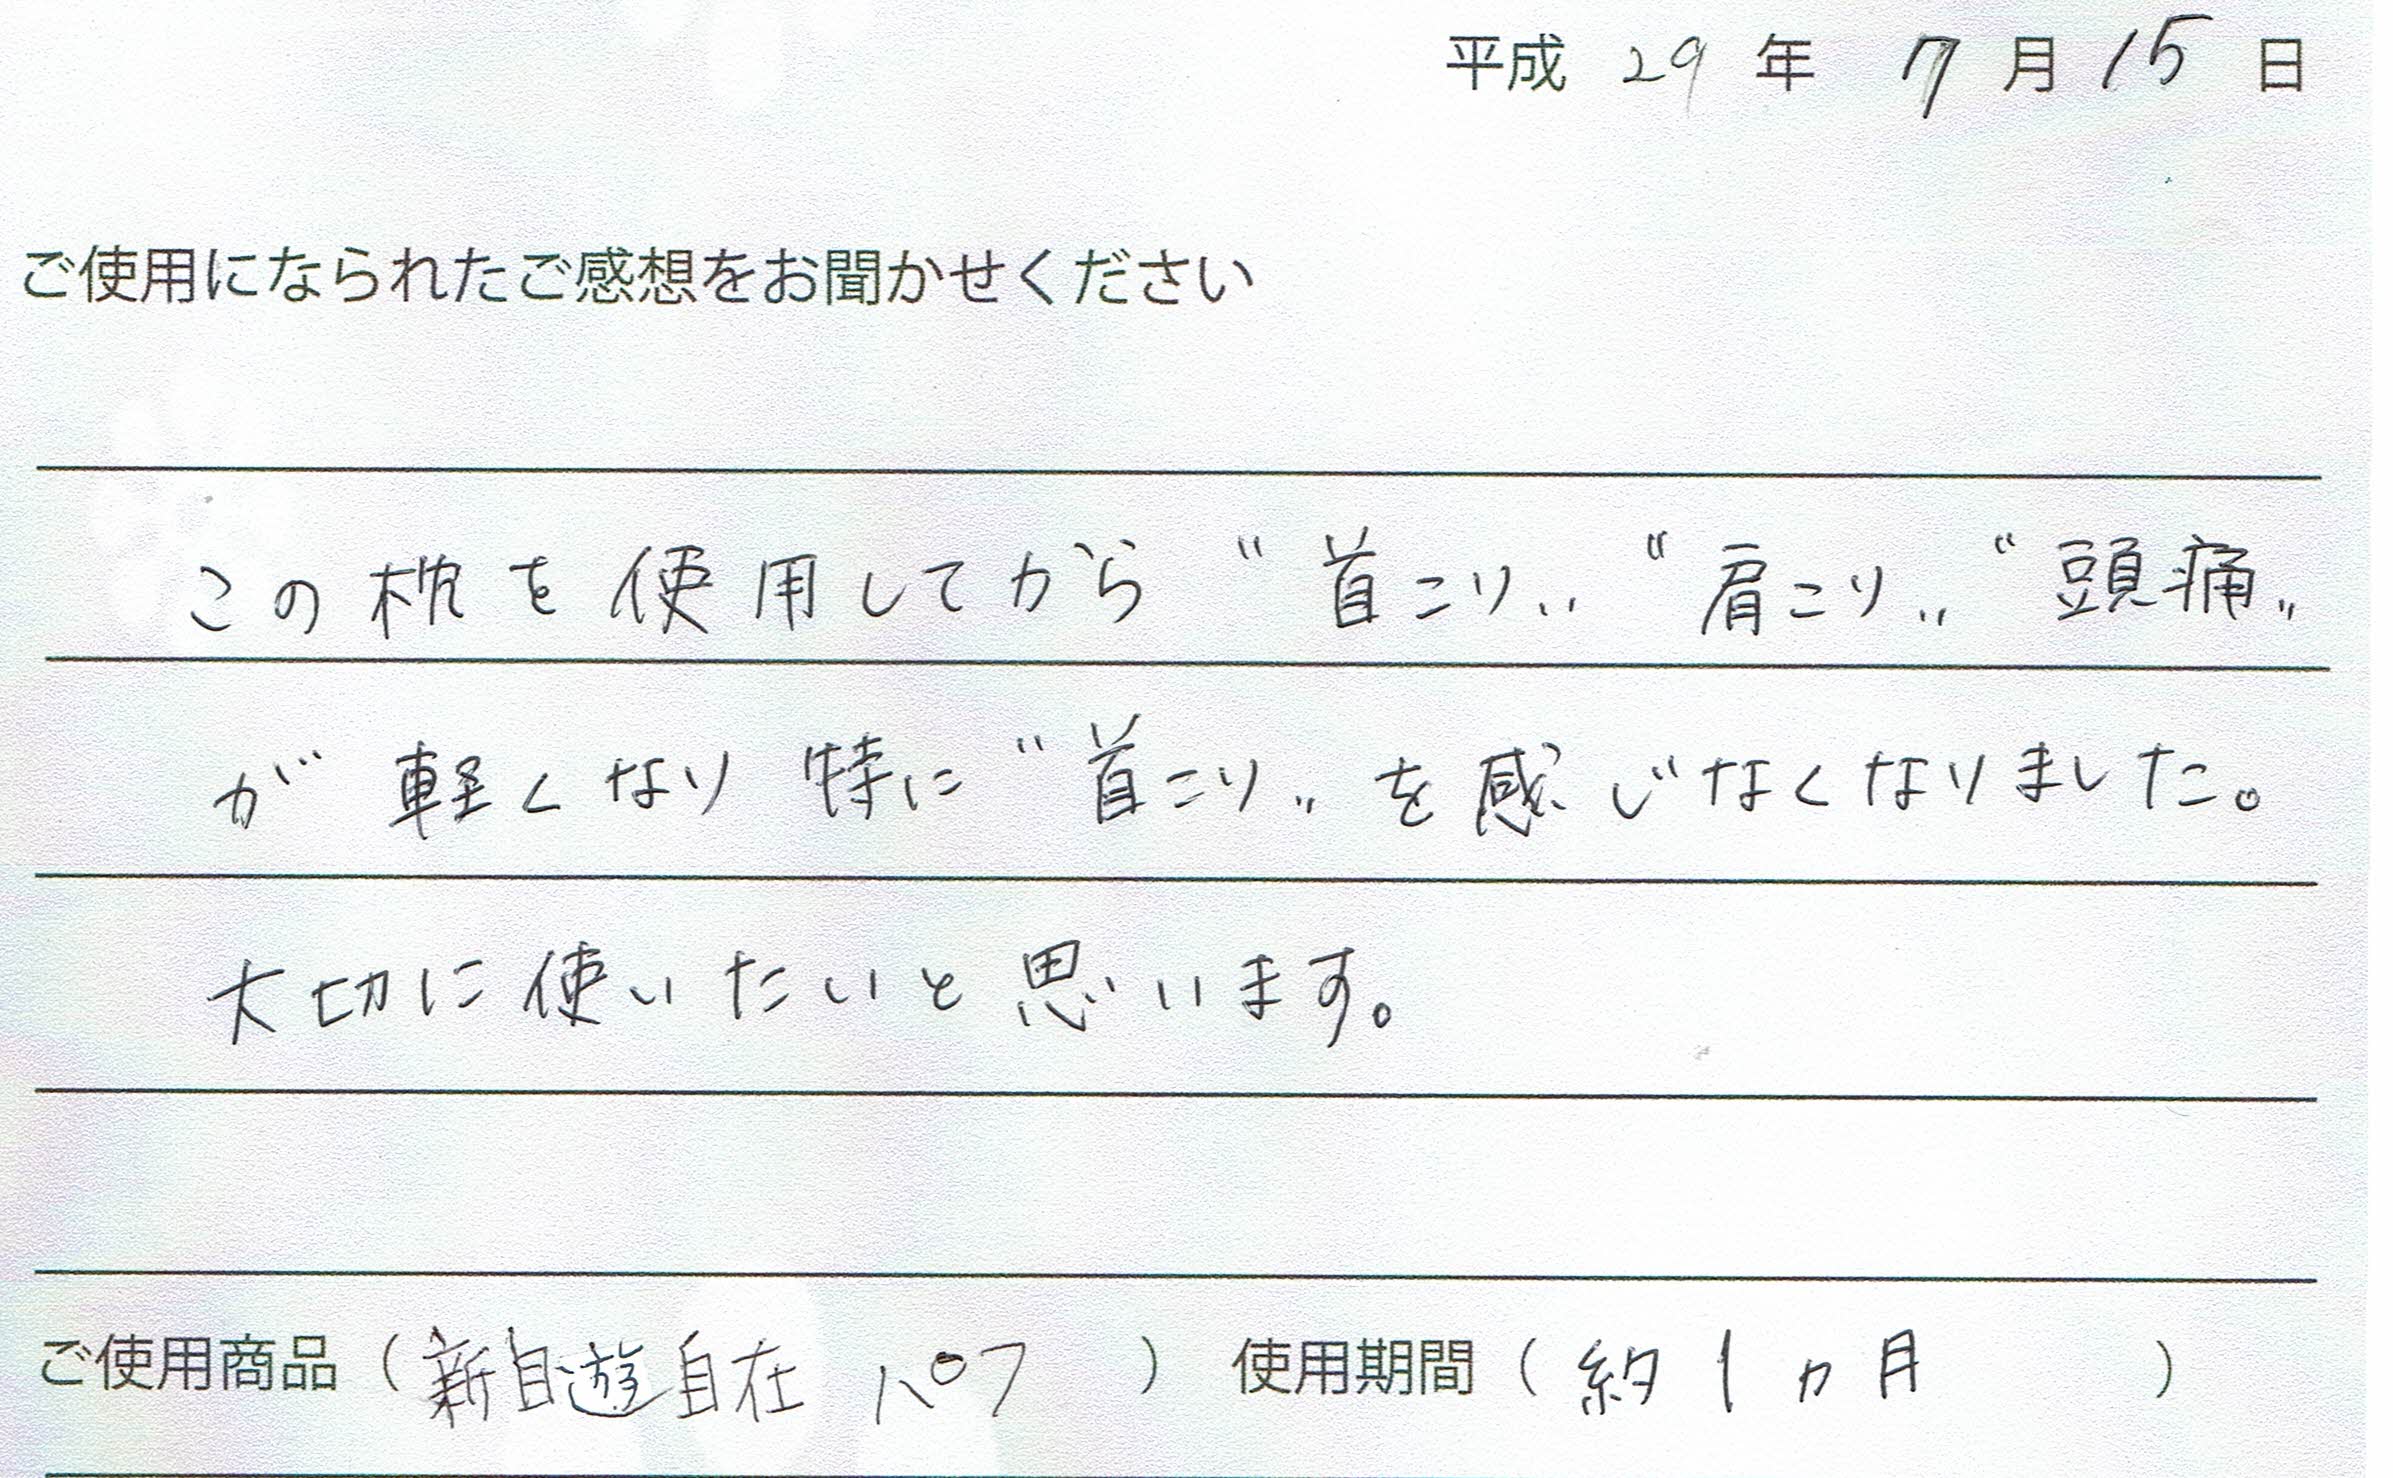 平成 29 年 7 月 15 日
ご使用になられたご感想をお聞かせください
この枕を使用してから〝首こり〟〝肩こり〟〝頭痛〟
が 軽くなり 特に〝首こり〟を感じなくなりました。
大切に使いたいと思います。
ご使用商品（新自遊自在 パフ ） 使用期間（ 約1ヵ月 ）